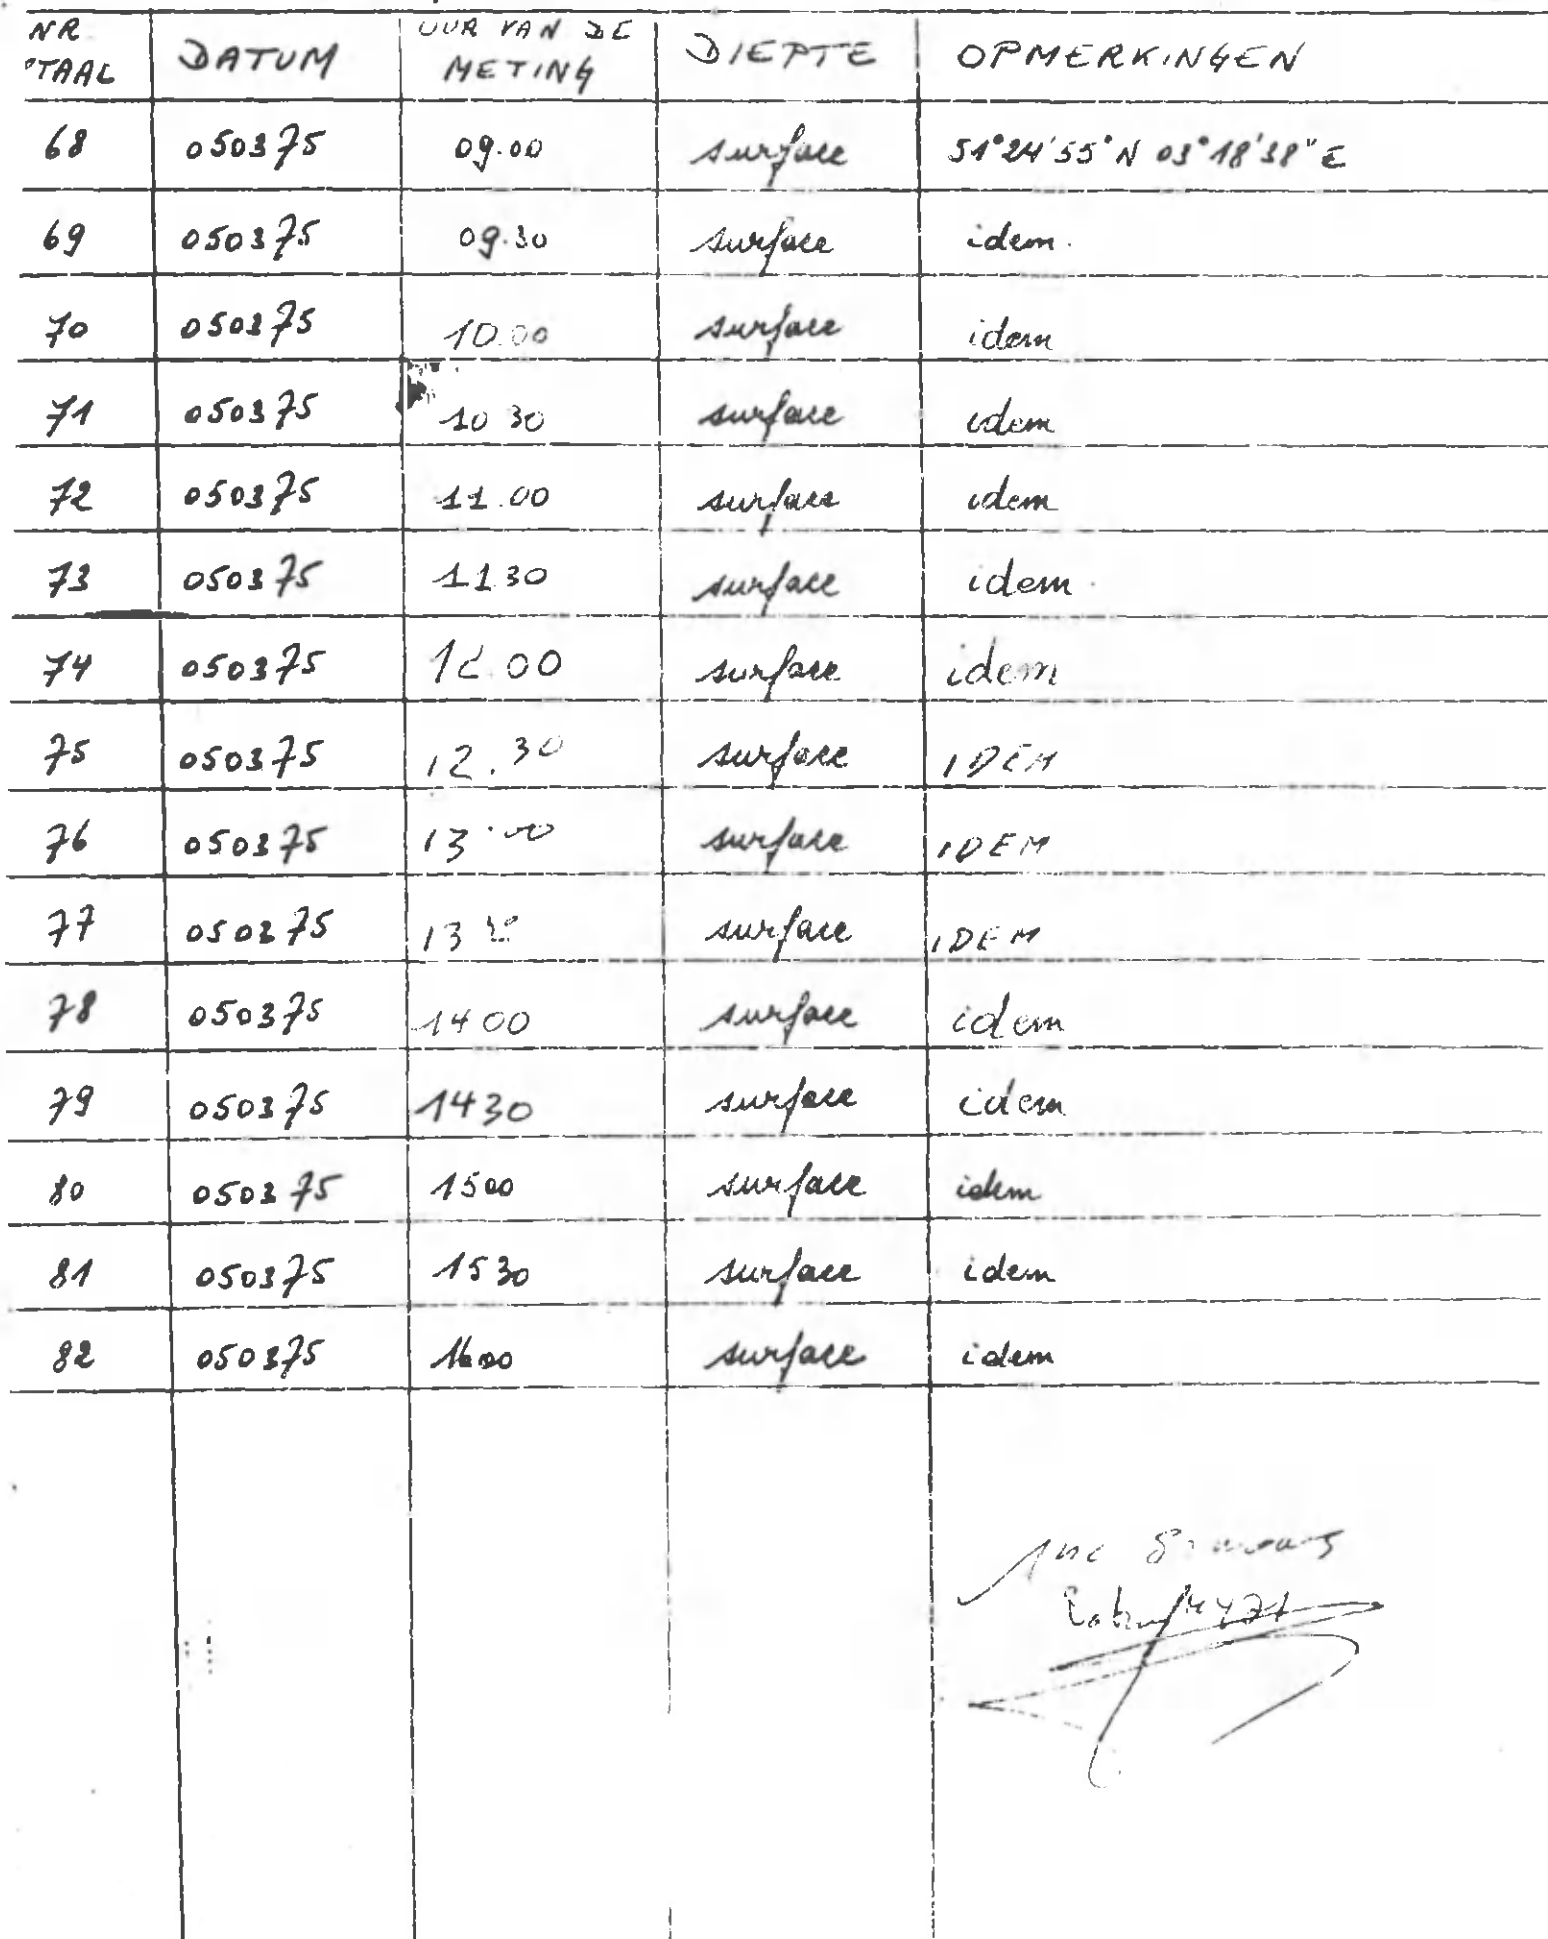 NR DATUM UUR VAN DE DIEPTE OPMERKINGEN
STAAL METING
68 050375 09.00 surface 51°24'55"N 03°18'38"E
69 050375 09.30 surface idem.
70 050375 10.00 surface idem
71 050375 10 30 surface idem
72 050375 11.00 surface idem
73 050375 11 30 surface idem.
74 050375 12.00 surface idem
75 050375 12.30 surface IDEM
76 050375 13.00 surface IDEM
77 050375 13 30 surface IDEM
78 050375 14 00 surface idem
79 050375 1430 surface idem
80 050375 1500 surface idem
81 050375 1530 surface idem
82 050375 1600 surface idem